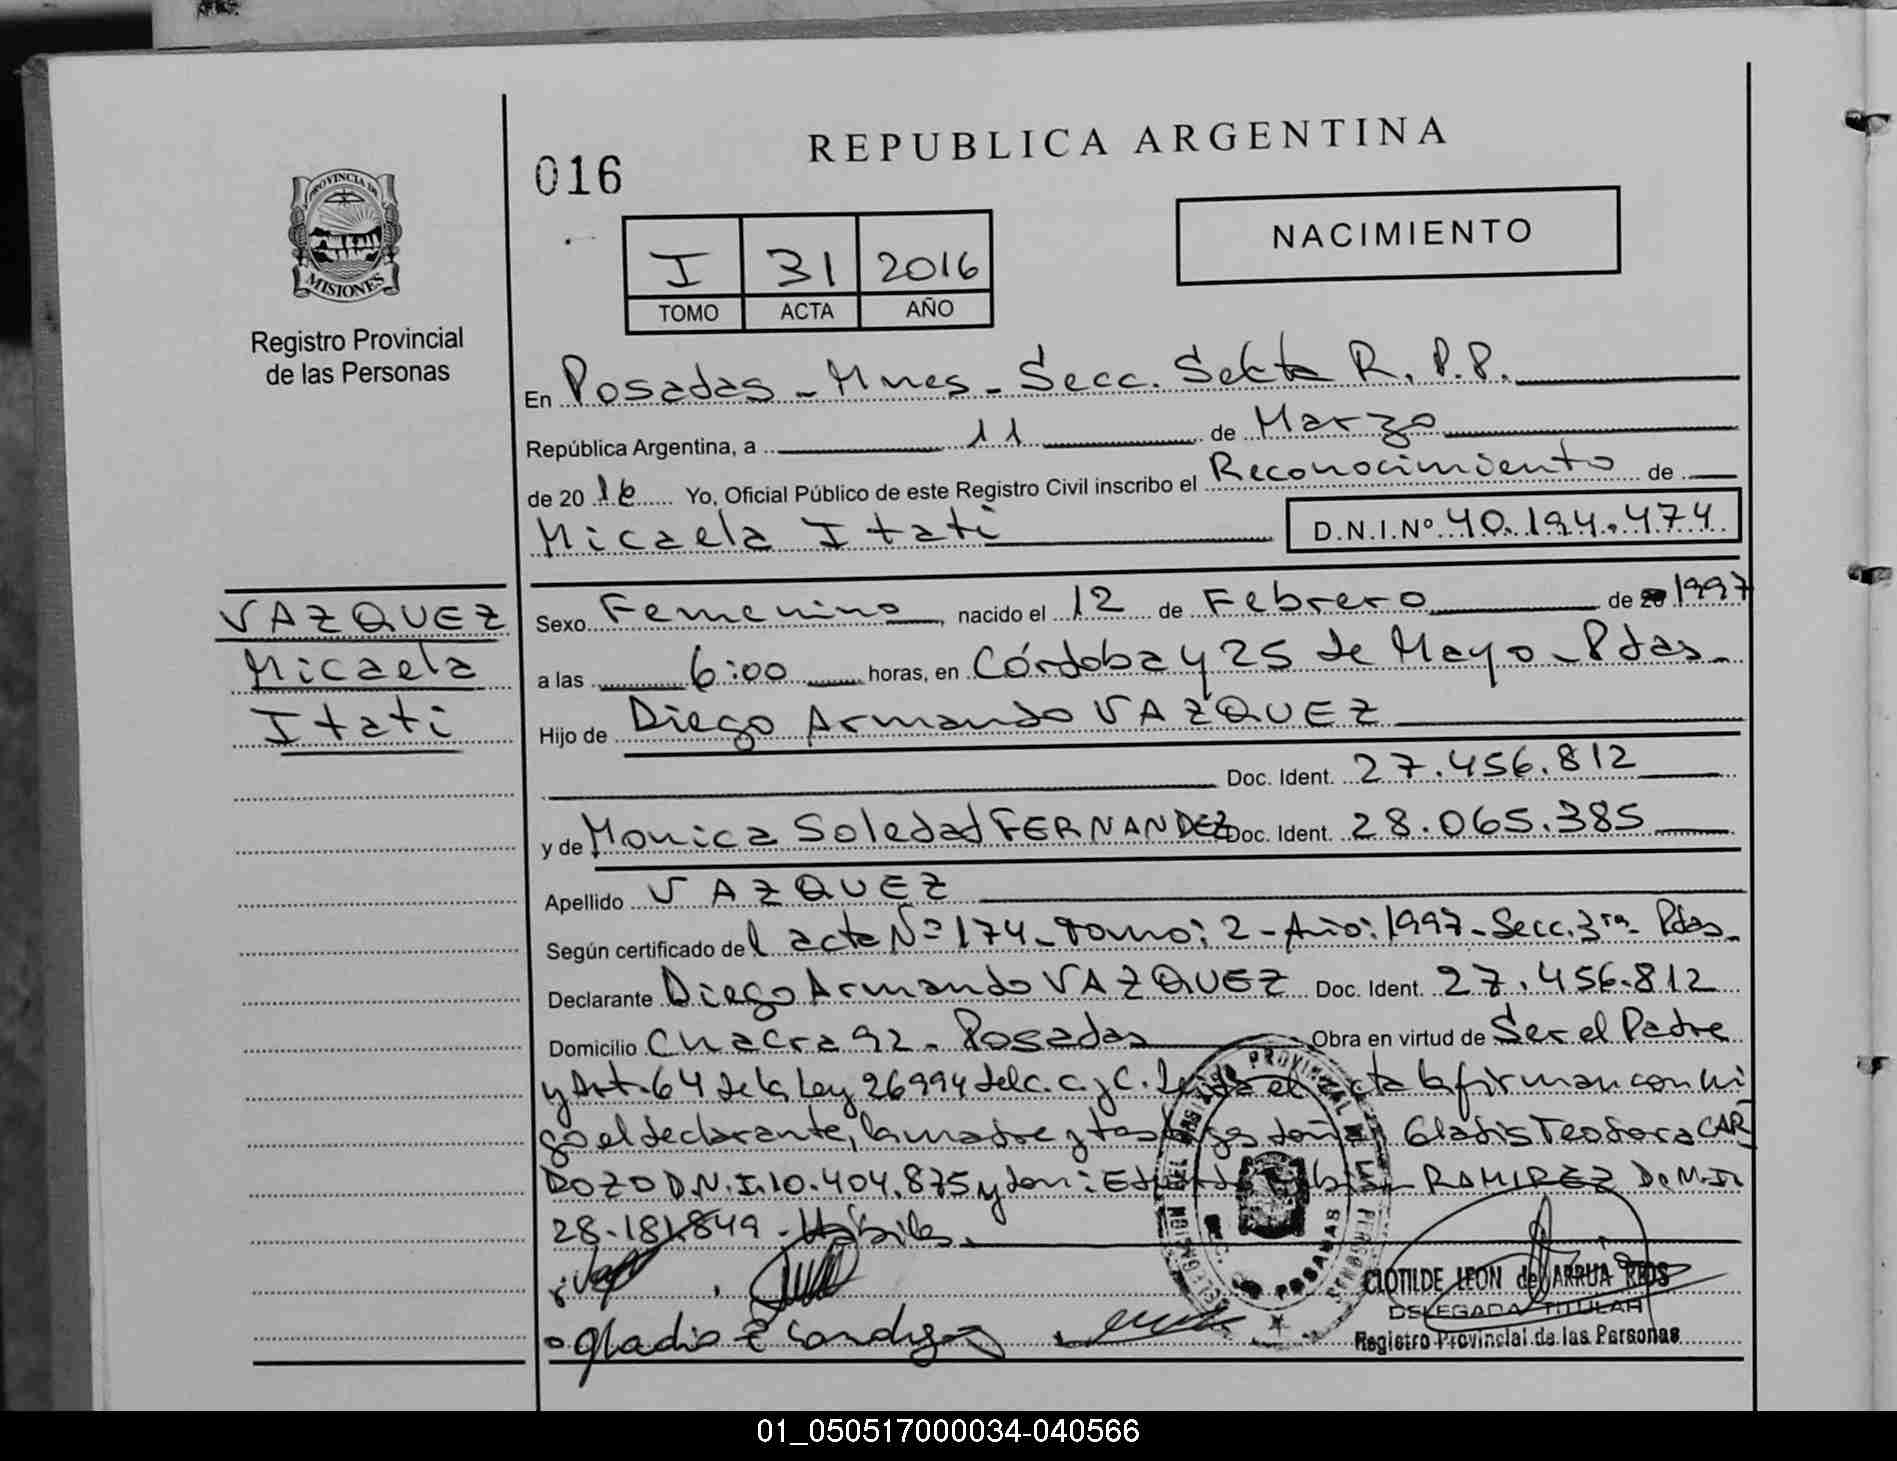 REPUBLICA ARGENTINA
016
NACIMIENTO
I 31 2016
TOMO ACTA AÑO
PROVINCIA DE
MISIONES
Registro Provincial
de las Personas
En Posadas - Mnes - Secc. Sexta R. P. P.
República Argentina, a 11 de Marzo
de 2016 Yo, Oficial Público de este Registro Civil inscribo el Reconocimiento de
Micaela Itati D.N.I.Nº 40.194.474
VAZQUEZ
Micaela
Itati
Sexo Femenino, nacido el 12 de Febrero de 1997
a las 6:00 horas, en Córdoba y 25 de Mayo - Pdas -
Hijo de Diego Armando VAZQUEZ
Doc. Ident. 27.456.812
y de Monica Soledad FERNANDEZ Doc. Ident. 28.065.385
Apellido VAZQUEZ
Según certificado del acta Nº 174 - Tomo: 2 - Año: 1997 - Secc. 3ra Pdas -
Declarante Diego Armando VAZQUEZ Doc. Ident. 27.456.812
Domicilio Chacra 92 - Posadas Obra en virtud de Ser el Padre
y Art. 64 de la Ley 26994 del C. C. y C. Leida el acta la firman conmi
go el declarante, la madre y testigos doña: Gladis Teodora CAR
DOZO D.N.I. 10.404.875 y don: RAMIREZ D.N.I.
28.181.849 - Hábiles.
CLOTILDE LEON de ARRUA RIOS
DELEGADA TITULAR
Registro Provincial de las Personas
POSADAS
01_050517000034-040566